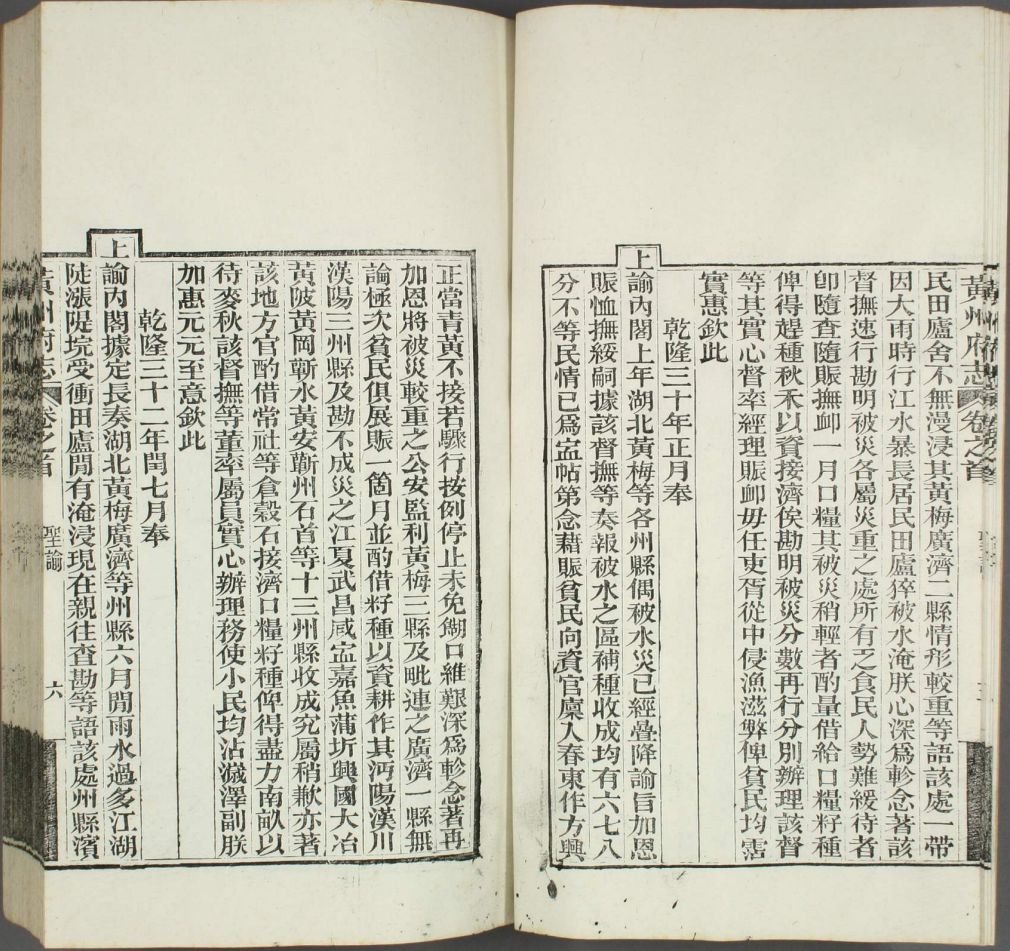 黃州府志 卷之首
民田廬舍不無漫浸其黃梅廣濟二縣情形較重等語該處一帶
因大雨時行江水暴長居民田廬猝被水淹朕心深爲軫念著該
督撫速行勘明被災各屬災重之處所有乏食民人勢難緩待者
卽隨查隨賑撫卹一月口糧其被災稍輕者酌量借給口糧籽種
俾得趕種秋禾以資接濟俟勘明被災分數再行分別辦理該督
等其實心督率經理賑卹毋任吏胥從中侵漁滋弊俾貧民均霑
實惠欽此
乾隆三十年正月奉
上諭內閣上年湖北黃梅等各州縣偶被水災已經疊降諭旨加恩
賑恤撫綏嗣據該督撫等奏報被水之區補種收成均有六七八
分不等民情已爲寍帖第念藉賑貧民向資官廩入春東作方興
正當青黃不接若驟行按例停止未免餬口維艱深爲軫念著再
加恩將被災較重之公安監利黃梅三縣及毗連之廣濟一縣無
論極次貧民俱展賑一箇月並酌借籽種以資耕作其沔陽漢川
漢陽三州縣及勘不成災之江夏武昌咸寍嘉魚蒲圻興國大冶
黃陂黃岡蘄水黃安蘄州石首等十三州縣收成究屬稍歉亦著
該地方官酌借常社等倉穀石接濟口糧籽種俾得盡力南畝以
待麥秋該督撫等董率屬員實心辦理務使小民均沾濊澤副朕
加惠元元至意欽此
乾隆三十二年閏七月奉
上諭內閣據定長奏湖北黃梅廣濟等州縣六月閒雨水過多江湖
陡漲隄垸受衝田廬閒有淹浸現在親往查勘等語該處州縣濱
黃州府志 卷之首 聖諭 六